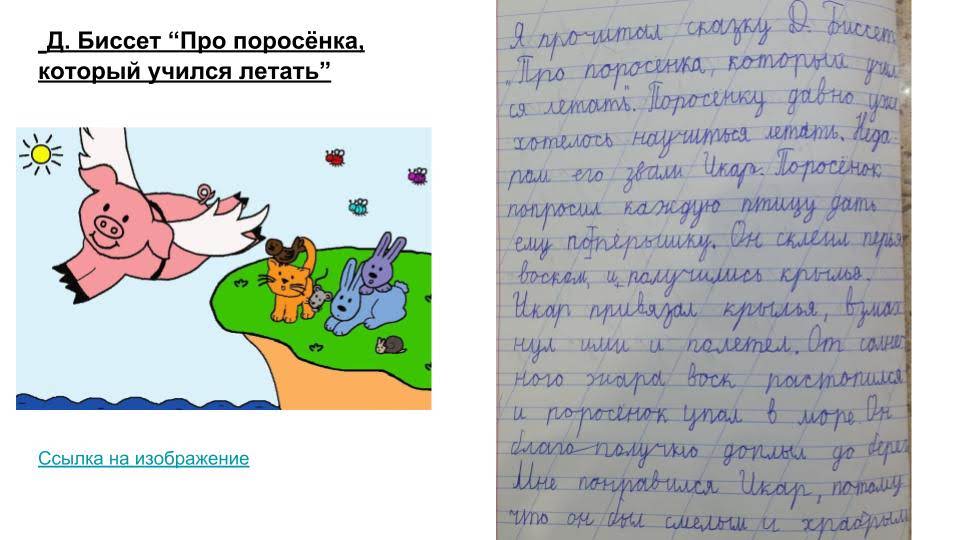 Д. Биссет “Про поросёнка,
который учился летать”
Ссылка на изображение
Я прочитал сказку Д. Биссет
„Про поросенка, который учил-
ся летать". Поросенку давно уже
хотелось научиться летать. Неда-
ром его звали Икар. Поросёнок
попросил каждую птицу дать
ему по пёрышку. Он склеил перья
воском, и получились крылья.
Икар привязал крылья, взмах-
нул ими и полетел. От солнеч-
ного жара воск растопился
и поросёнок упал в море. Он
благополучно доплыл до берег
Мне понравился Икар, потому
что он был смелым и храбрым